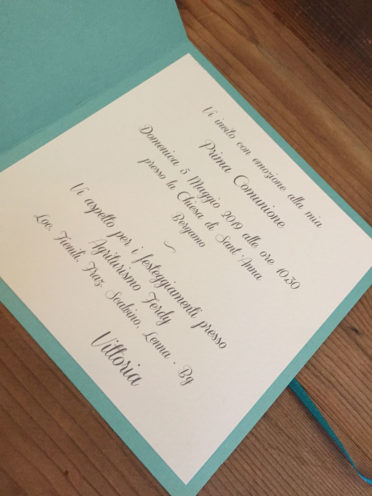 Vi invito con emozione alla mia
Prima Comunione
Domenica 5 Maggio 2019 alle ore 10.30
presso la Chiesa di Sant'Anna
Bergamo
Vi aspetto per i festeggiamenti presso
Agriturismo Ferdy
Loc. Fienili, Fraz. Scalvino, Lenna - Bg
Vittoria